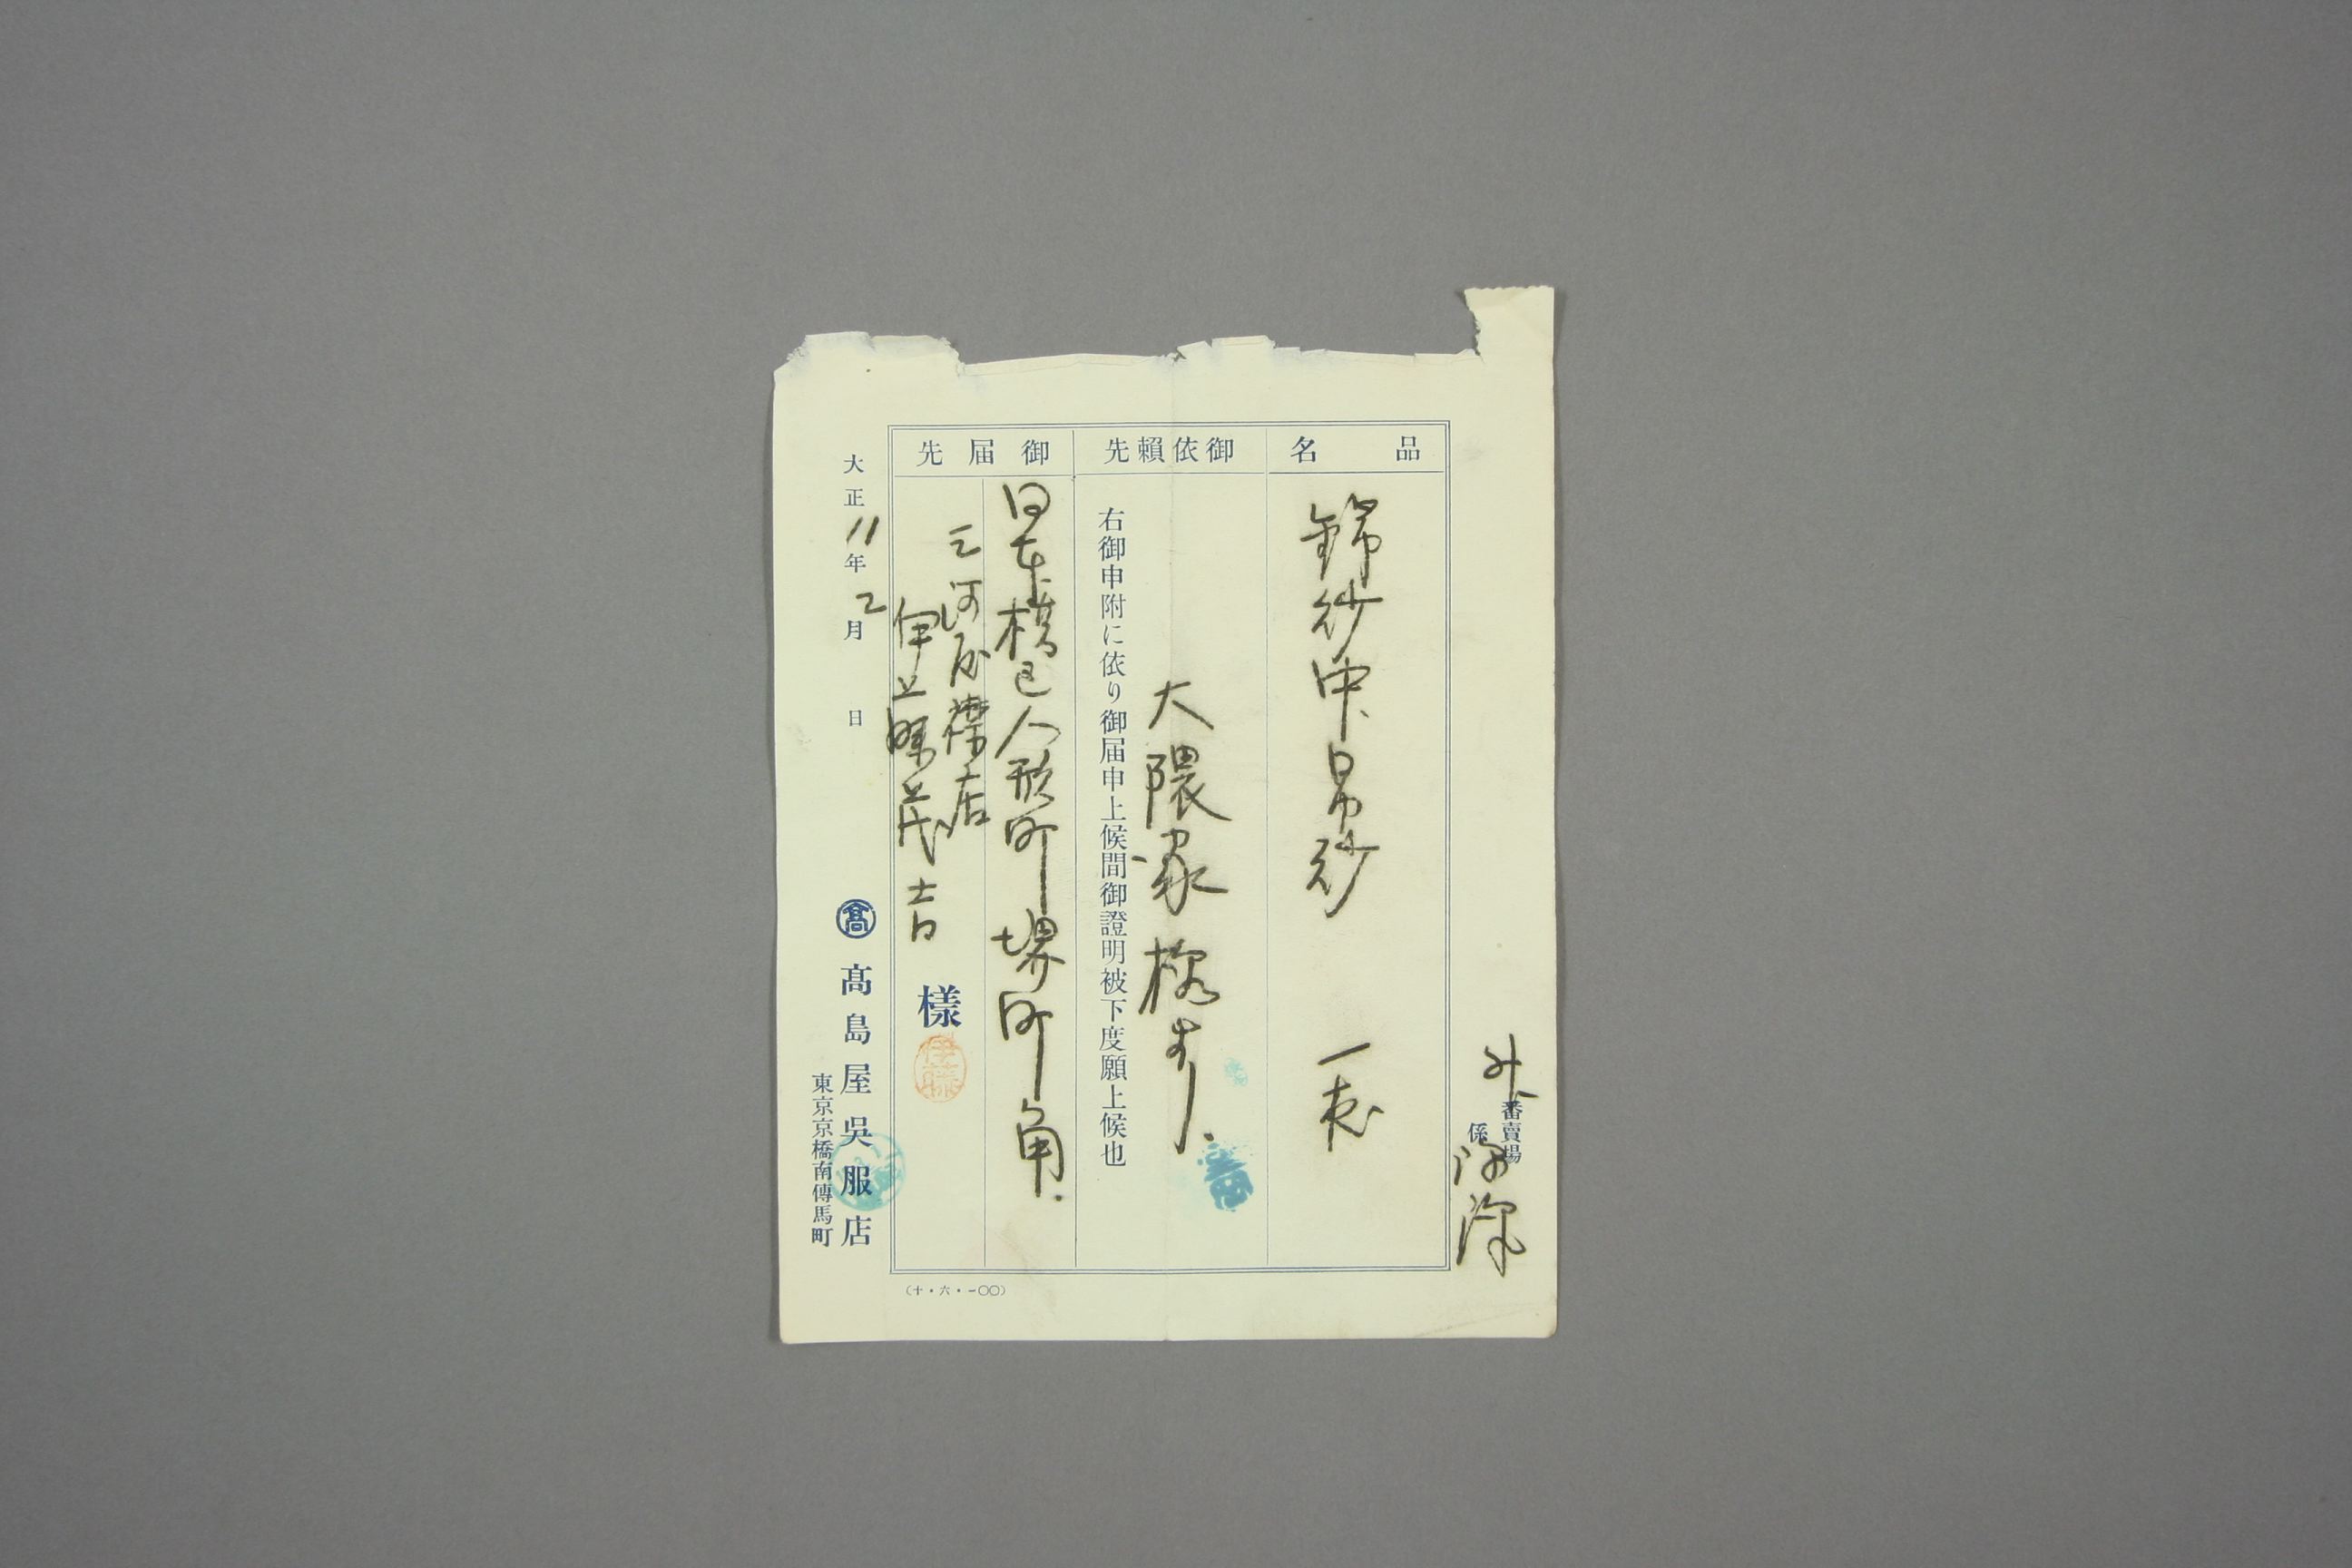 外番賣場
係
品名
錦紗中帛紗 一表
御依頼先
大隈家様ヨリ
右御申附に依り御届申上候間御證明被下度願上候也
御届先
日本橋区人形町堺町角
三河屋襟店
伊藤茂吉 様
伊藤
大正11年2月 日
高 髙島屋呉服店
東京京橋南傳馬町
(十・六・一〇〇)